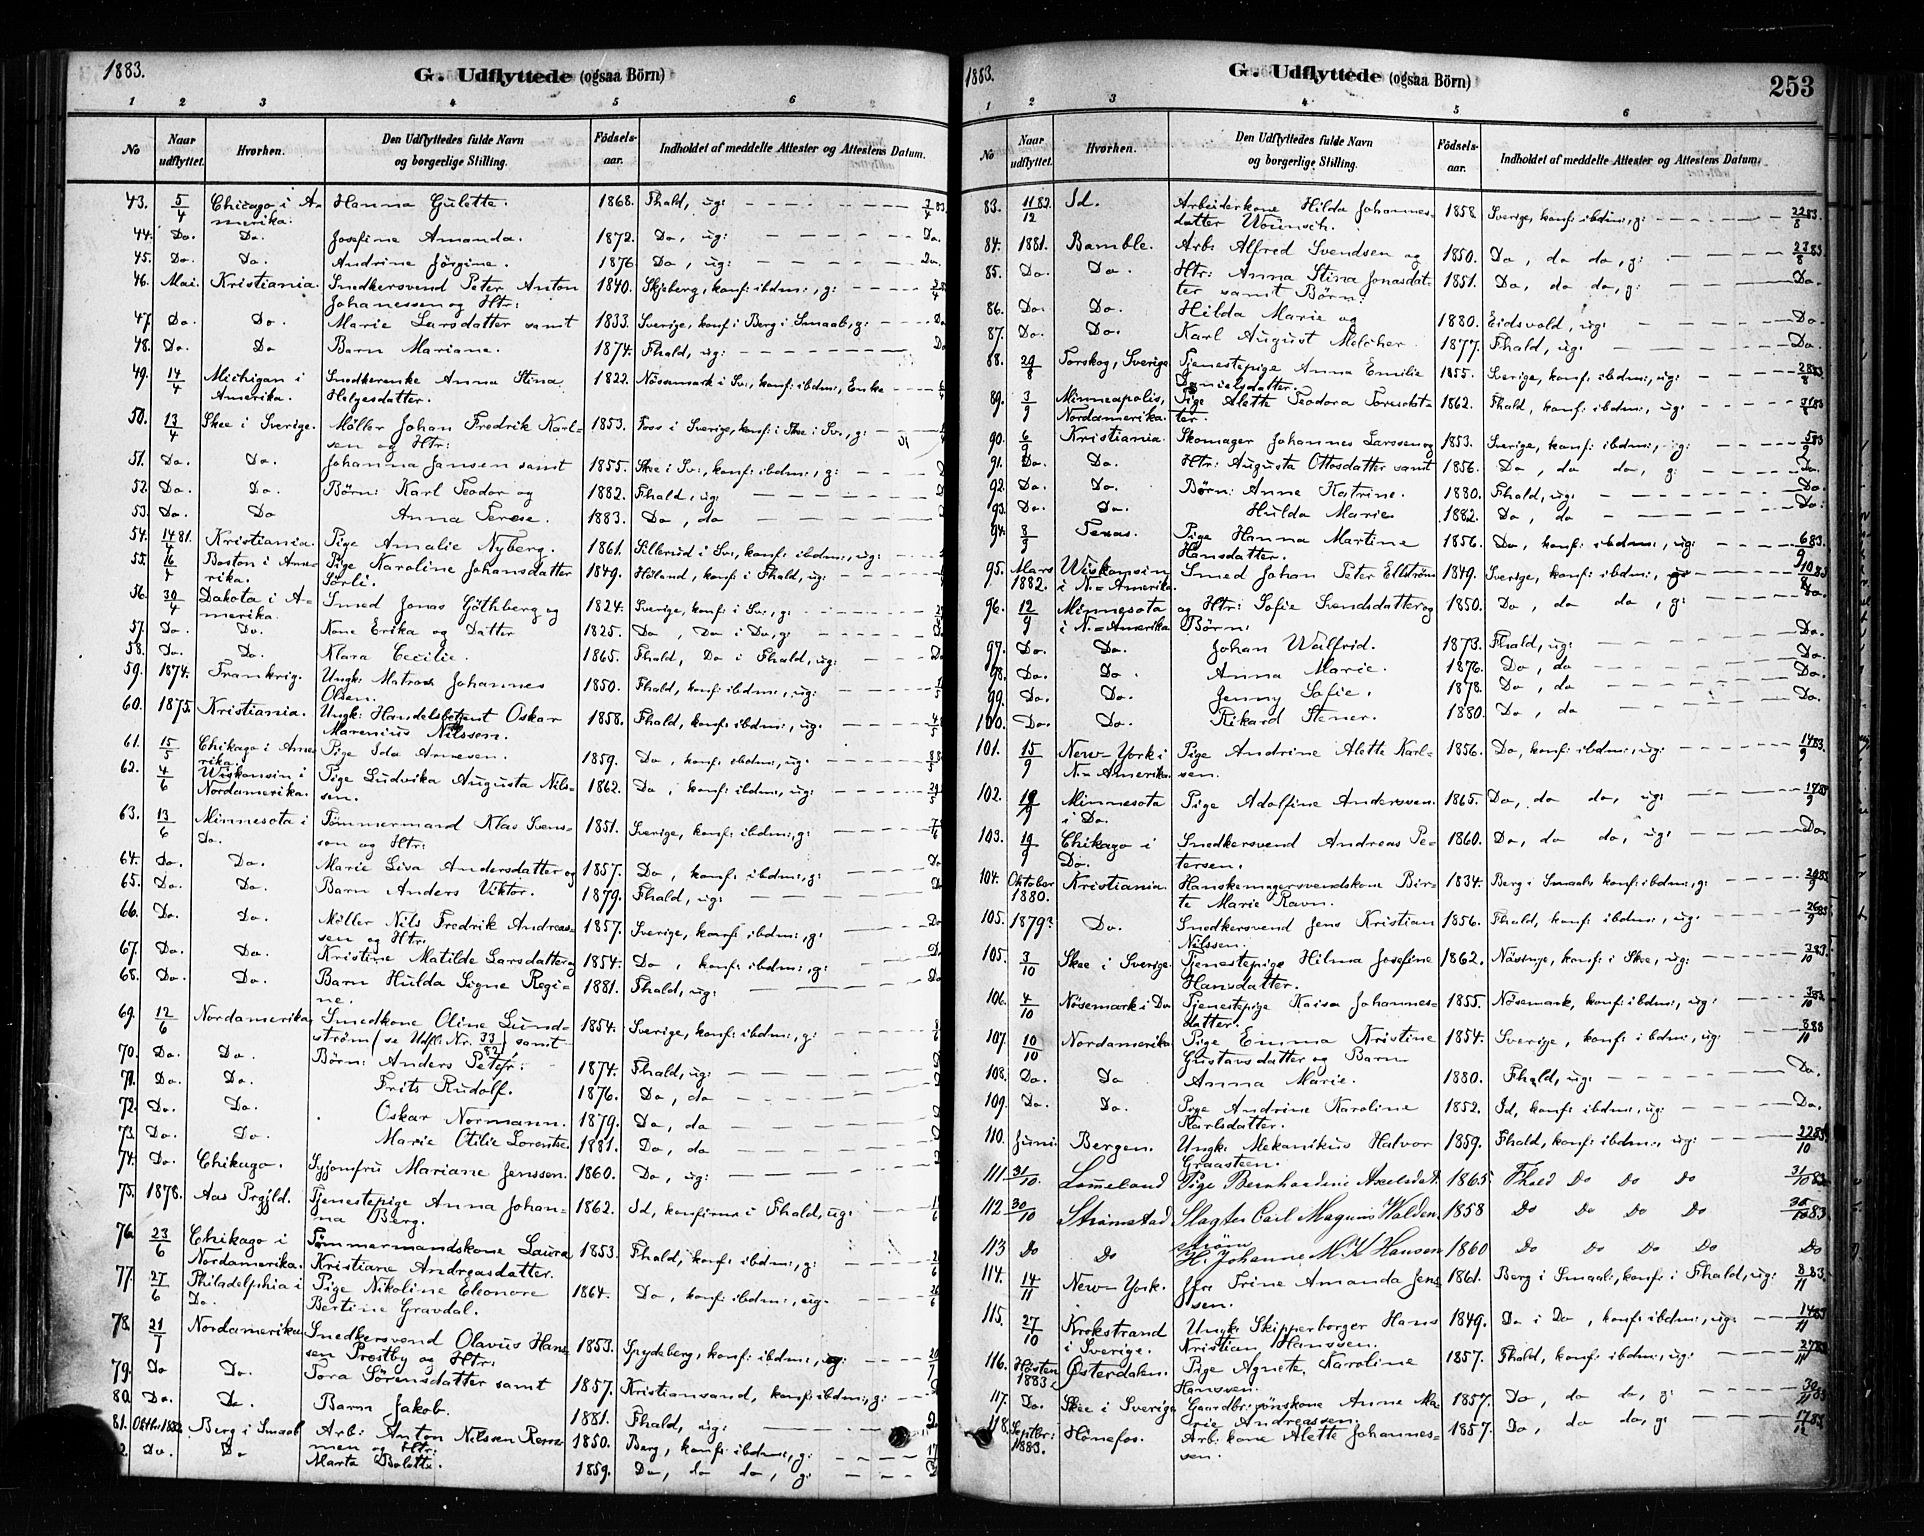 1883.
G. Udflyttede (ogsaa Börn)
1 2 3 4 5 6
No Naar udflyttet. Hvorhen. Den Udflyttedes fulde Navn og borgerlige Stilling. Födsels-aar. Indholdet af meddelte Attester og Attestens Datum.
43. 5/4 Chicago i A- Hanna Gulette. 1868. Fhald, ug:
merika.
44. Do. Do. Josefine Amanda. 1872. Do, ug: Do.
45. Do. Do. Andrine Jörgine. 1876 Do, ug: Do.
46. Mai. Kristiania. Snedkersvend Peter Anton 1840. Skjeberg, konf: ibdm:, g:
Johanessen og Htr:
47. Do. Do. Marie Larsdatter samt 1833. Sverige, konf: i Berg i Smaal, g: Do
48. Do. Do Barn Mariane. 1874. Fhald, ug: Do
49. 14/4 Michigan i Snedkerenke Anna Stina 1822. Nössemark i Sv:, konf: ibdm:, Enke
Amerika. Helgesdatter.
50. 13/4 Skee i Sverige. Möller Johan Fredrik Karl- 1853. Foss i Sverige, konf: i Skee i Sv:, g:
sen og Htr:
51. Do. Do. Johanna Jansen samt 1855. Skee i Sv:, konf: ibdm:, g:
52. Do. Do. Börn: Karl Teodor og 1882. Fhald, ug:
53. Do. Do Anna Terese. 1883. Do, do
54. 14/4 81. Kristiania. Pige Amalie Nyberg. 1861. Sillerud i Sv:, konf: ibdm:, ug:
55. 16/4 Boston i Ame- Pige Karoline Johansdatter 1849. Höland, konf: i Fhald, ug:
rika. Sörli.
56. 30/4 Dakota i A- Smed Jonas Göthberg og 1824. Sverige, konf: i Sv:, g:
merika.
57. Do. Do. Kone Erika og Datter 1825. Do, Do i Do, g: Do
58. Do. Do. Klara Cecilie. 1865. Fhald, Do i Fhald, ug: Do
59. 1874. Frankrig. Ungk: Matros Johannes 1850. Fhald, konf: ibdm:, ug:
Olsen.
60. 1875. Kristiania. Ungk: Handelsbetjent Oskar 1858. Fhald, konf: ibdm:, ug:
Marenius Nilssen.
61. 15/5 Chikago i Ame- Pige Ida Arnesen. 1859. Do, konf: ibdm:, ug:
rika.
62. 4/6 Wiskonsin i Pige Ludvika Augusta Nils- 1862. Do, konf: ibdm:, ug:
Nordamerika. sen.
63. 13/6 Minnesota i Tömmermand Klas Svens- 1851. Sverige, konf: ibdm:, g:
Do. son og Htr:
64. Do. Do. Marie Lisa Andersdatter og 1857. Do, konf: ibdm:, g: Do
65. Do. Do. Barn Anders Viktor. 1879. Fhald, ug: Do
66. Do. Do. Möller Nils Fredrik Andreas- 1857. Sverige, konf: ibdm:, g: Do
sen og Htr:
67. Do. Do. Kristine Matilde Larsdatter og 1854. Do, konf: ibdm:, g: Do
68. Do. Do. Barn Hulda Signe Regi- 1881. Fhald, ug: Do
ne.
69. 12/6 Nordamerika Smedkone Oline Lund- 1854. Sverige, konf: ibdm:, g:
ström (se Udfl: Nr. 33/82) samt
70. Do. Do. Börn: Anders Peter. 1874. Fhald, ug:
71. Do. Do. Frits Rudolf. 1876. Do, do
72. Do. Do. Oskar Normann. 1879. Do, do
73. Do. Do. Marie Otilie Lorentse. 1881. Do, do
74. Do. Chikago. Syjomfru Mariane Jenssen. 1860. Do, ug:
75. 1878. Aas Prgjld. Tjenestepige Anna Johan- 1862. Id, konfirm: i Fhald, ug:
na Berg.
76. 23/6 Chikago i Tömmermandskone Laura 1853. Fhald, konf: ibdm:, g:
Nordamerika. Kristiane Andreasdatter.
77. 27/6 Philadelphia i Pige Nikoline Eleonore 1864. Do, konf: ibdm:, ug.
Do. Bertine Gravdal.
78. 21/7 Nordamerika Snedkersvend Olavus Han- 1853. Spydeberg, konf: ibdm:, g:
sen Prestby og Htr:
79. Do Do. Tora Sörensdatter samt 1857. Kristiansand, konf: ibdm:, g:
80. Do. Do. Barn Jakob. 1881. Fhald, ug:
81. Oktbr: 1882 Berg i Smaal Arb: Anton Nilssen Rem- 1850. Berg, konf: ibdm:, g:
men og Htr:
Do. Do Marta Bolette. 1859. Do, do do, g:
1883.
G. Udflyttede (ogsaa Börn)
253
1 2 3 4 5 6
No Naar udflyttet. Hvorhen. Den Udflyttedes fulde Navn og borgerlige Stilling. Födsels-aar. Indholdet af meddelte Attester og Attestens Datum.
83. 11/12 82. Id. Arbeiderkone Hilda Johannes- 1858. Sverige, konf: ibdm:, g: 22/8 83.
datter Wounsch.
84. 1881. Bamble. Arb: Alfred Svendsen og 1850. Do, do do, g: 23/8 83
85. Do. Do. Htr: Anna Stina Jonasdat- 1851. Do, do do, g: Do.
ter samt Börn:
86. Do. Do. Hilda Marie og 1880. Eidsvold, ug: Do.
87. Do. Do. Karl August Melcher. 1877. Fhald, ug: Do.
88. 29/8 Torskog, Sverige Tjenestepige Anna Emilie 1855. Sverige, konf: ibdm:, ug: 28/8 83.
Danielsdatter.
89. 3/9 Minneapolis, Pige Alette Teodora Toresdat- 1862. Fhald, konf: ibdm:, ug: 31/8 83
Nordamerika. ter.
90. 6/9 Kristiania. Skomager Johannes Larssen og 1853. Sverige, konf: ibdm:, g: 5/9 83
91. Do. Do. Htr: Augusta Ottosdatter samt 1856. Do, do do, g: Do.
92. Do. Do. Börn: Anne Katrine. 1880. Fhald, ug: Do.
93. Do. Do. Hulda Marie 1882. Do, do Do.
94. 8/9 Texas. Pige Hanna Martine 1856. Do, konf: ibdm:, ug: 6/9 83.
Hansdatter.
95. Mars Wiskonsin Smed Johan Peter Elldröm 1849. Sverige, konf: ibdm:, 10/8 83
1882. i N.=Amerika.
96. 12/9 Minnesota og Htr: Sofie Svendsdatter og 1850. Do, do do, g: Do.
i N.=Amerika Börn:
97. Do. Do. Johan Walfrid. 1873. Fhald, ug: Do.
98. Do. Do. Anna Marie. 1876. Do, do Do.
99. Do. Do. Jenny Sofie. 1878. Do, do Do.
100. Do. Do. Rikard Stener. 1880. Do, do Do.
101. 15/9 New-York i Pige Andrine Alette Karl- 1856. Do, konf: ibdm:, ug: 14/9 83.
N.=Amerika. sen.
102. 19/9 Minnesota Pige Adolfine Anderssen. 1865. Do, do do, ug: 18/9 83
i Do.
103. 19/9 Chikago i Snedkersvend Andreas Pe- 1860. Do, do do, ug: Do.
Do. tersen.
104. Oktober Kristiania. Hanskemagersvendskone Bir- 1834. Berg i Smaal, konf: ibdm:, g:
1880. te Marie Ravn.
105. 1879? Do. Snedkersvend Jens Kristian 1856. Fhald, konf: ibdm:, ug: 26/9 83
Nilssen.
105. 3/10 Skee i Sverige. Tjenestepige Hilma Josefine 1862. Näsinge, konf: i Skee, ug: 2/10 83.
Hansdatter.
106. 4/10 Nösemark i Do Tjenestepige Kaisa Johannes- 1855. Nösemark, konf: ibdm:, ug: 3/10 83.
datter.
107. 10/10 Nordamerika Pige Emma Kristine 1854. Sverige, konf: i bdm:, ug: 8/10 83
Gustavsdatter og Barn
108. Do. Do Anna Marie. 1880. Fhald, ug: Do.
109. Do. Do. Pige Andrine Karoline 1852. Id, konf: ibdm:, ug: Do.
Karlsdatter.
110. Juni. Bergen. Ungk: Mekanikus Halvor 1859. Fhald, konf: ibdm:, ug: 22/10 83.
Graasteen.
111 31/10. Lommeland Pige Bernhardine Axelsdat. 1865 Fhald Do Do Do 31/10 83
112 30/10 Strömstad Slagter Carl Magnus Walden- 1858 Do Do Do Do 30/10 83
ström
113 Do Do H. Johanne M. K. Hansen 1860 Do Do Do Do Do
114. 14/11 New-York. Jfr: Trine Amanda Jens- 1861. Berg i Smaal:, konf: i Fhald, ug: 8/11 83.
sen.
115. 27/10 Krokstrand Ungk: Skipperborger Hans 1849. Do i Do, konf: ibdm:, ug: 14/11 83
i Sverige. Kristian Hanssen.
116. Hösten Österdalen. Pige Agnete Karoline 1857. Fhald, konf: ibdm:, ug: 27/11 83
1883. Hanssen.
117. Do. Skee i Sverige Gaardbr: sönskone Anne Ma- 1857. Do, do do, g: 30/11 83
rie Andreassen.
118. Septbr: Hönefos. Arb: kone Alette Johannes- 1857. Do, do do, g: 17/12 83
1883. sen.